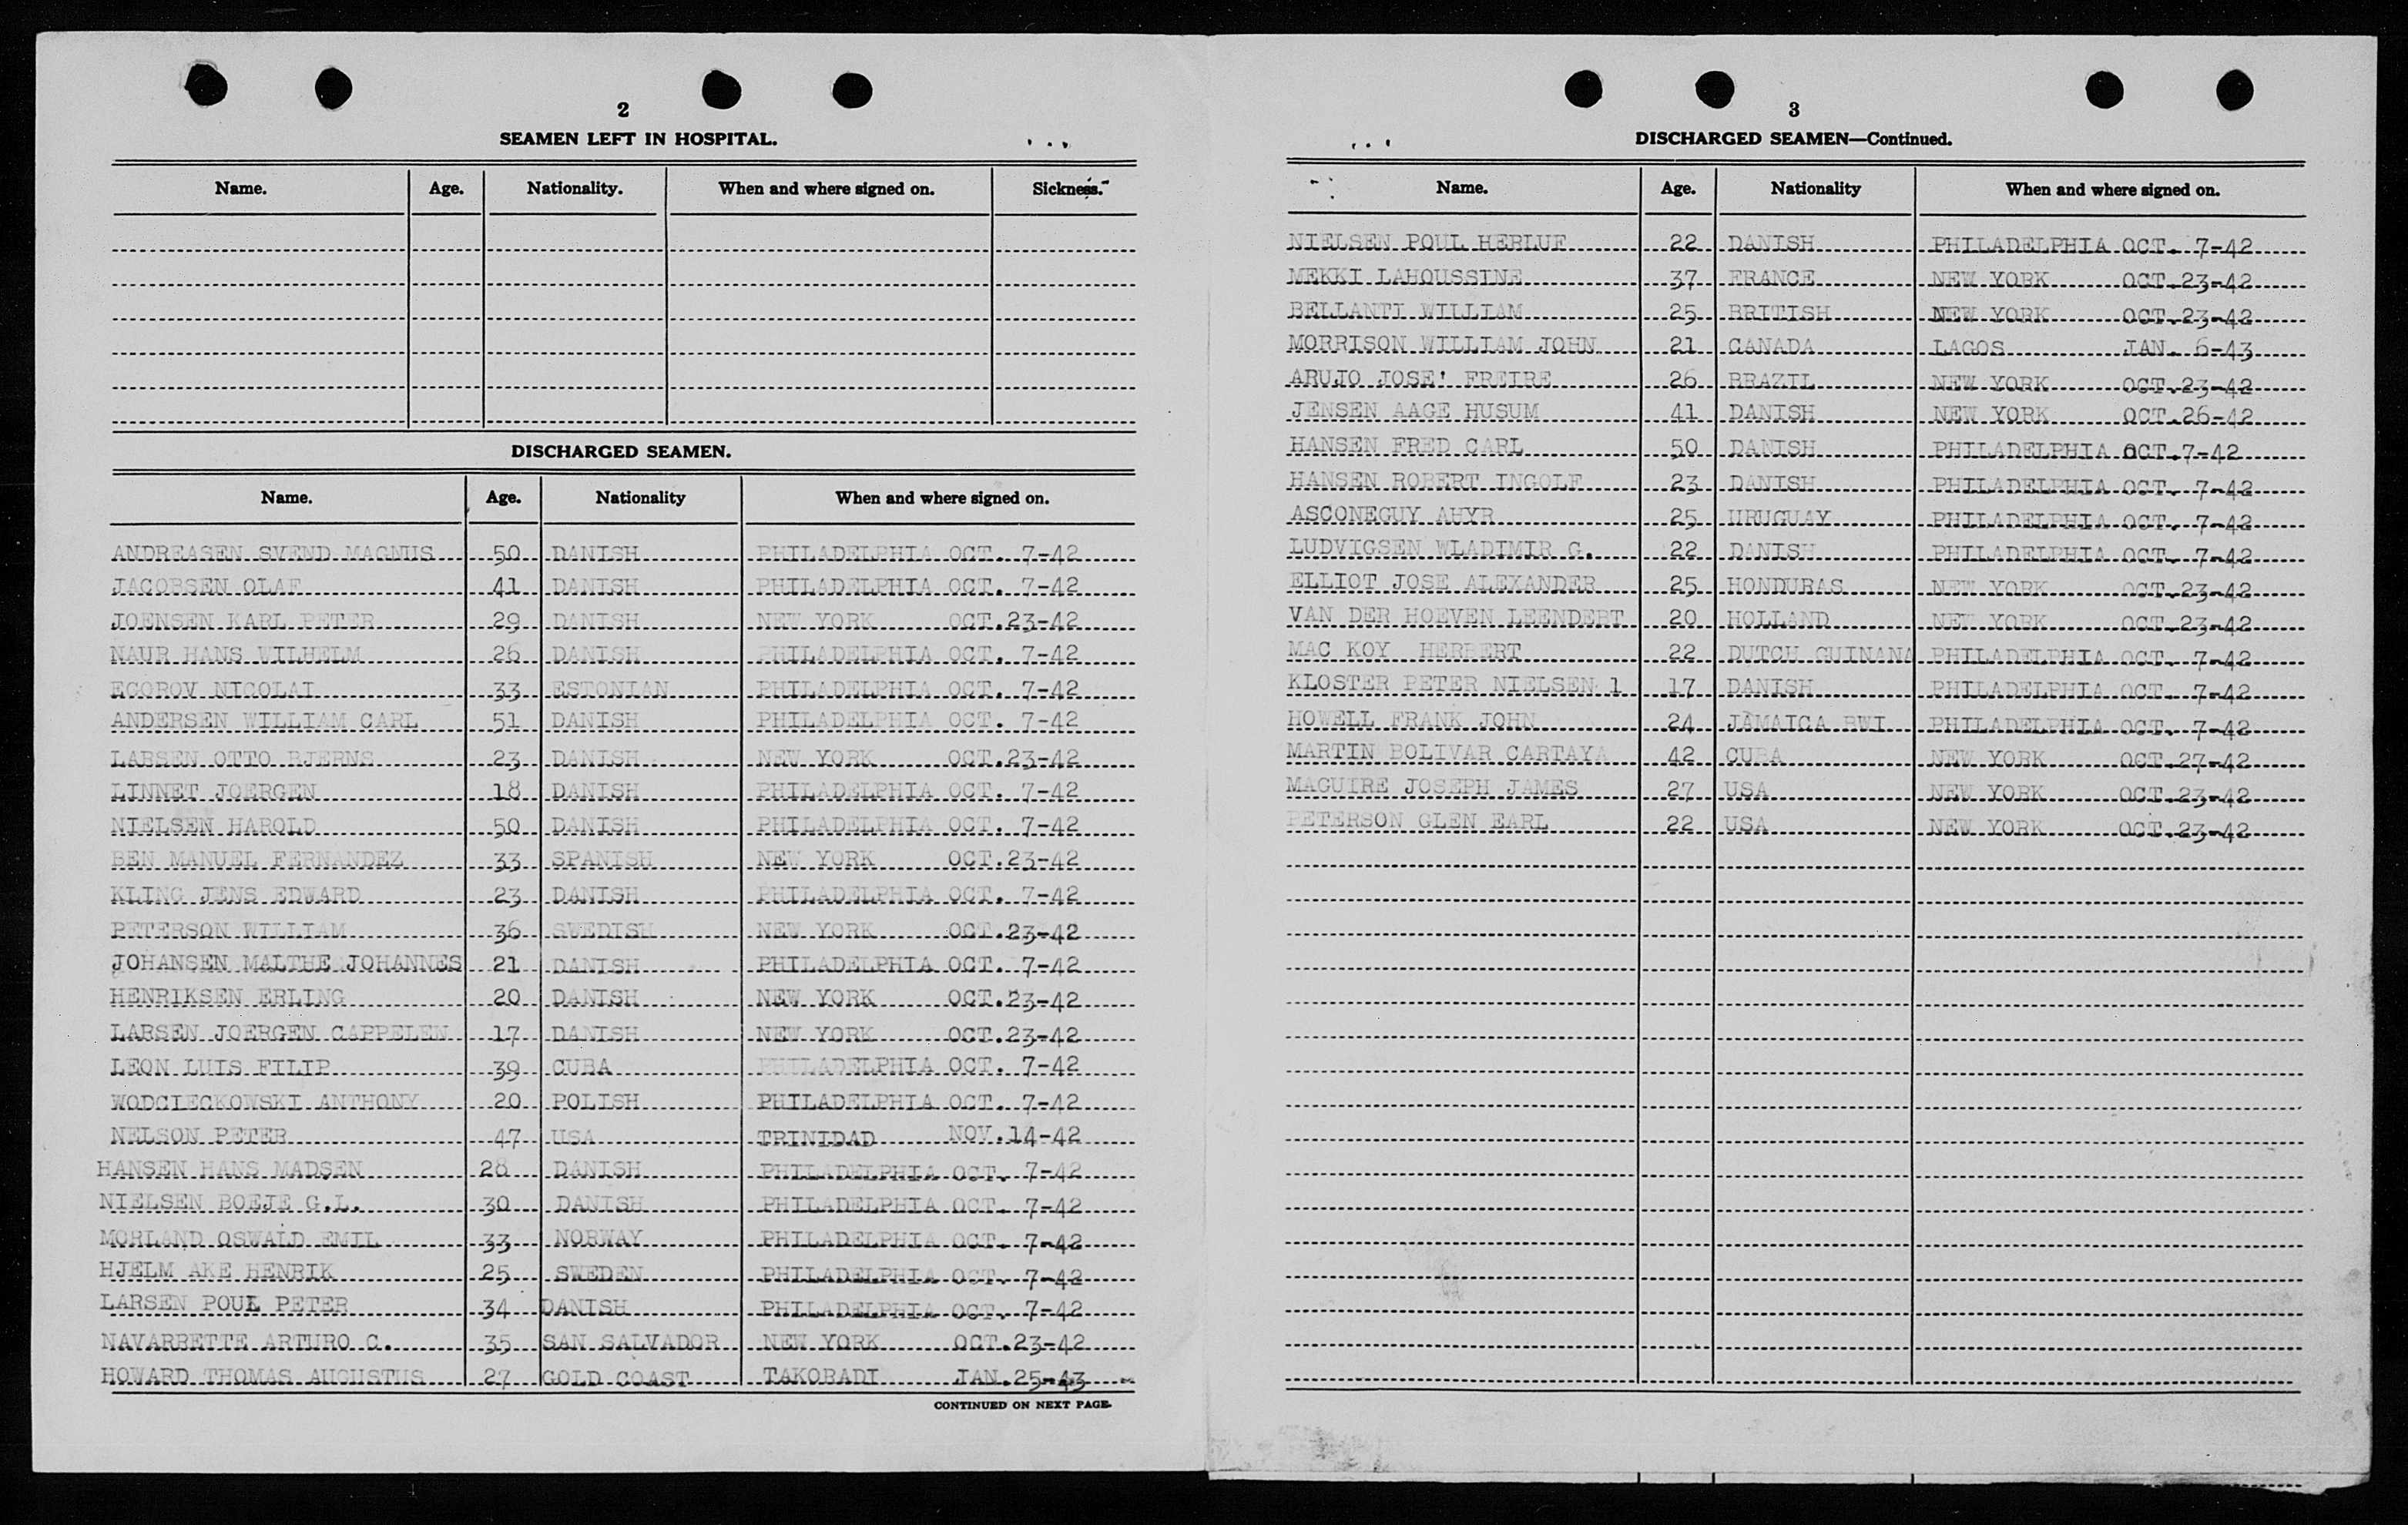 2
SEAMEN LEFT IN HOSPITAL.
Name. Age. Nationality. When and where signed on. Sickness.
DISCHARGED SEAMEN.
Name. Age. Nationality When and where signed on.
ANDREASEN SVEND MAGNUS 50 DANISH PHILADELPHIA OCT. 7-42
JACOBSEN OLAF 41 DANISH PHILADELPHIA OCT. 7-42
JOENSEN KARL PETER 29 DANISH NEW YORK OCT.23-42
NAUR HANS WILHELM 26 DANISH PHILADELPHIA OCT. 7-42
EGOROV NICOLAI 33 ESTONIAN PHILADELPHIA OCT. 7-42
ANDERSEN WILLIAM CARL 51 DANISH PHILADELPHIA OCT. 7-42
LARSEN OTTO BJERNS 23 DANISH NEW YORK OCT.23-42
LINNET JOERGEN 18 DANISH PHILADELPHIA OCT. 7-42
NIELSEN HAROLD 50 DANISH PHILADELPHIA OCT. 7-42
BEN MANUEL FERNANDEZ 33 SPANISH NEW YORK OCT.23-42
KLING JENS EDWARD 23 DANISH PHILADELPHIA OCT. 7-42
PETERSON WILLIAM 36 SWEDISH NEW YORK OCT.23-42
JOHANSEN MALTHE JOHANNES 21 DANISH PHILADELPHIA OCT. 7-42
HENRIKSEN ERLING 20 DANISH NEW YORK OCT.23-42
LARSEN JOERGEN CAPPELEN 17 DANISH NEW YORK OCT.23-42
LEON LUIS FILIP 39 CUBA PHILADELPHIA OCT. 7-42
WODCIECKOWSKI ANTHONY 20 POLISH PHILADELPHIA OCT. 7-42
NELSON PETER 47 USA TRINIDAD NOV.14-42
HANSEN HANS MADSEN 28 DANISH PHILADELPHIA OCT. 7-42
NIELSEN BOEJE G.L. 30 DANISH PHILADELPHIA OCT. 7-42
MORLAND OSWALD EMIL 33 NORWAY PHILADELPHIA OCT. 7-42
HJELM AKE HENRIK 25 SWEDEN PHILADELPHIA OCT. 7-42
LARSEN POUL PETER 34 DANISH PHILADELPHIA OCT. 7-42
NAVARRETTE ARTURO C. 35 SAN SALVADOR NEW YORK OCT.23-42
HOWARD THOMAS AUGUSTUS 27 GOLD COAST TAKORADI JAN.25-43
CONTINUED ON NEXT PAGE.
3
DISCHARGED SEAMEN—Continued.
Name. Age. Nationality When and where signed on.
NIELSEN POUL HERLUF 22 DANISH PHILADELPHIA OCT. 7-42
MEKKI LAHOUSSINE 37 FRANCE NEW YORK OCT.23-42
BELLANTI WILLIAM 25 BRITISH NEW YORK OCT.23-42
MORRISON WILLIAM JOHN 21 CANADA LAGOS JAN. 6-43
ARUJO JOSE' FREIRE 26 BRAZIL NEW YORK OCT.23-42
JENSEN AAGE HUSUM 41 DANISH NEW YORK OCT.26-42
HANSEN FRED CARL 50 DANISH PHILADELPHIA OCT.7-42
HANSEN ROBERT INGOLF 23 DANISH PHILADELPHIA OCT. 7-42
ASCONEGUY AHYR 25 URUGUAY PHILADELPHIA OCT. 7-42
LUDVIGSEN WLADIMIR G. 22 DANISH PHILADELPHIA OCT. 7-42
ELLIOT JOSE ALEXANDER 25 HONDURAS NEW YORK OCT.23-42
VAN DER HOEVEN LEENDERT 20 HOLLAND NEW YORK OCT.23-42
MAC KOY HERBERT 22 DUTCH GUINANA PHILADELPHIA OCT. 7-42
KLOSTER PETER NIELSEN 1 17 DANISH PHILADELPHIA OCT. 7-42
HOWELL FRANK JOHN 24 JAMAICA BWI PHILADELPHIA OCT. 7-42
MARTIN BOLIVAR CARTAYA 42 CUBA NEW YORK OCT.27-42
MAGUIRE JOSEPH JAMES 27 USA NEW YORK OCT.23-42
PETERSON GLEN EARL 22 USA NEW YORK OCT.23-42